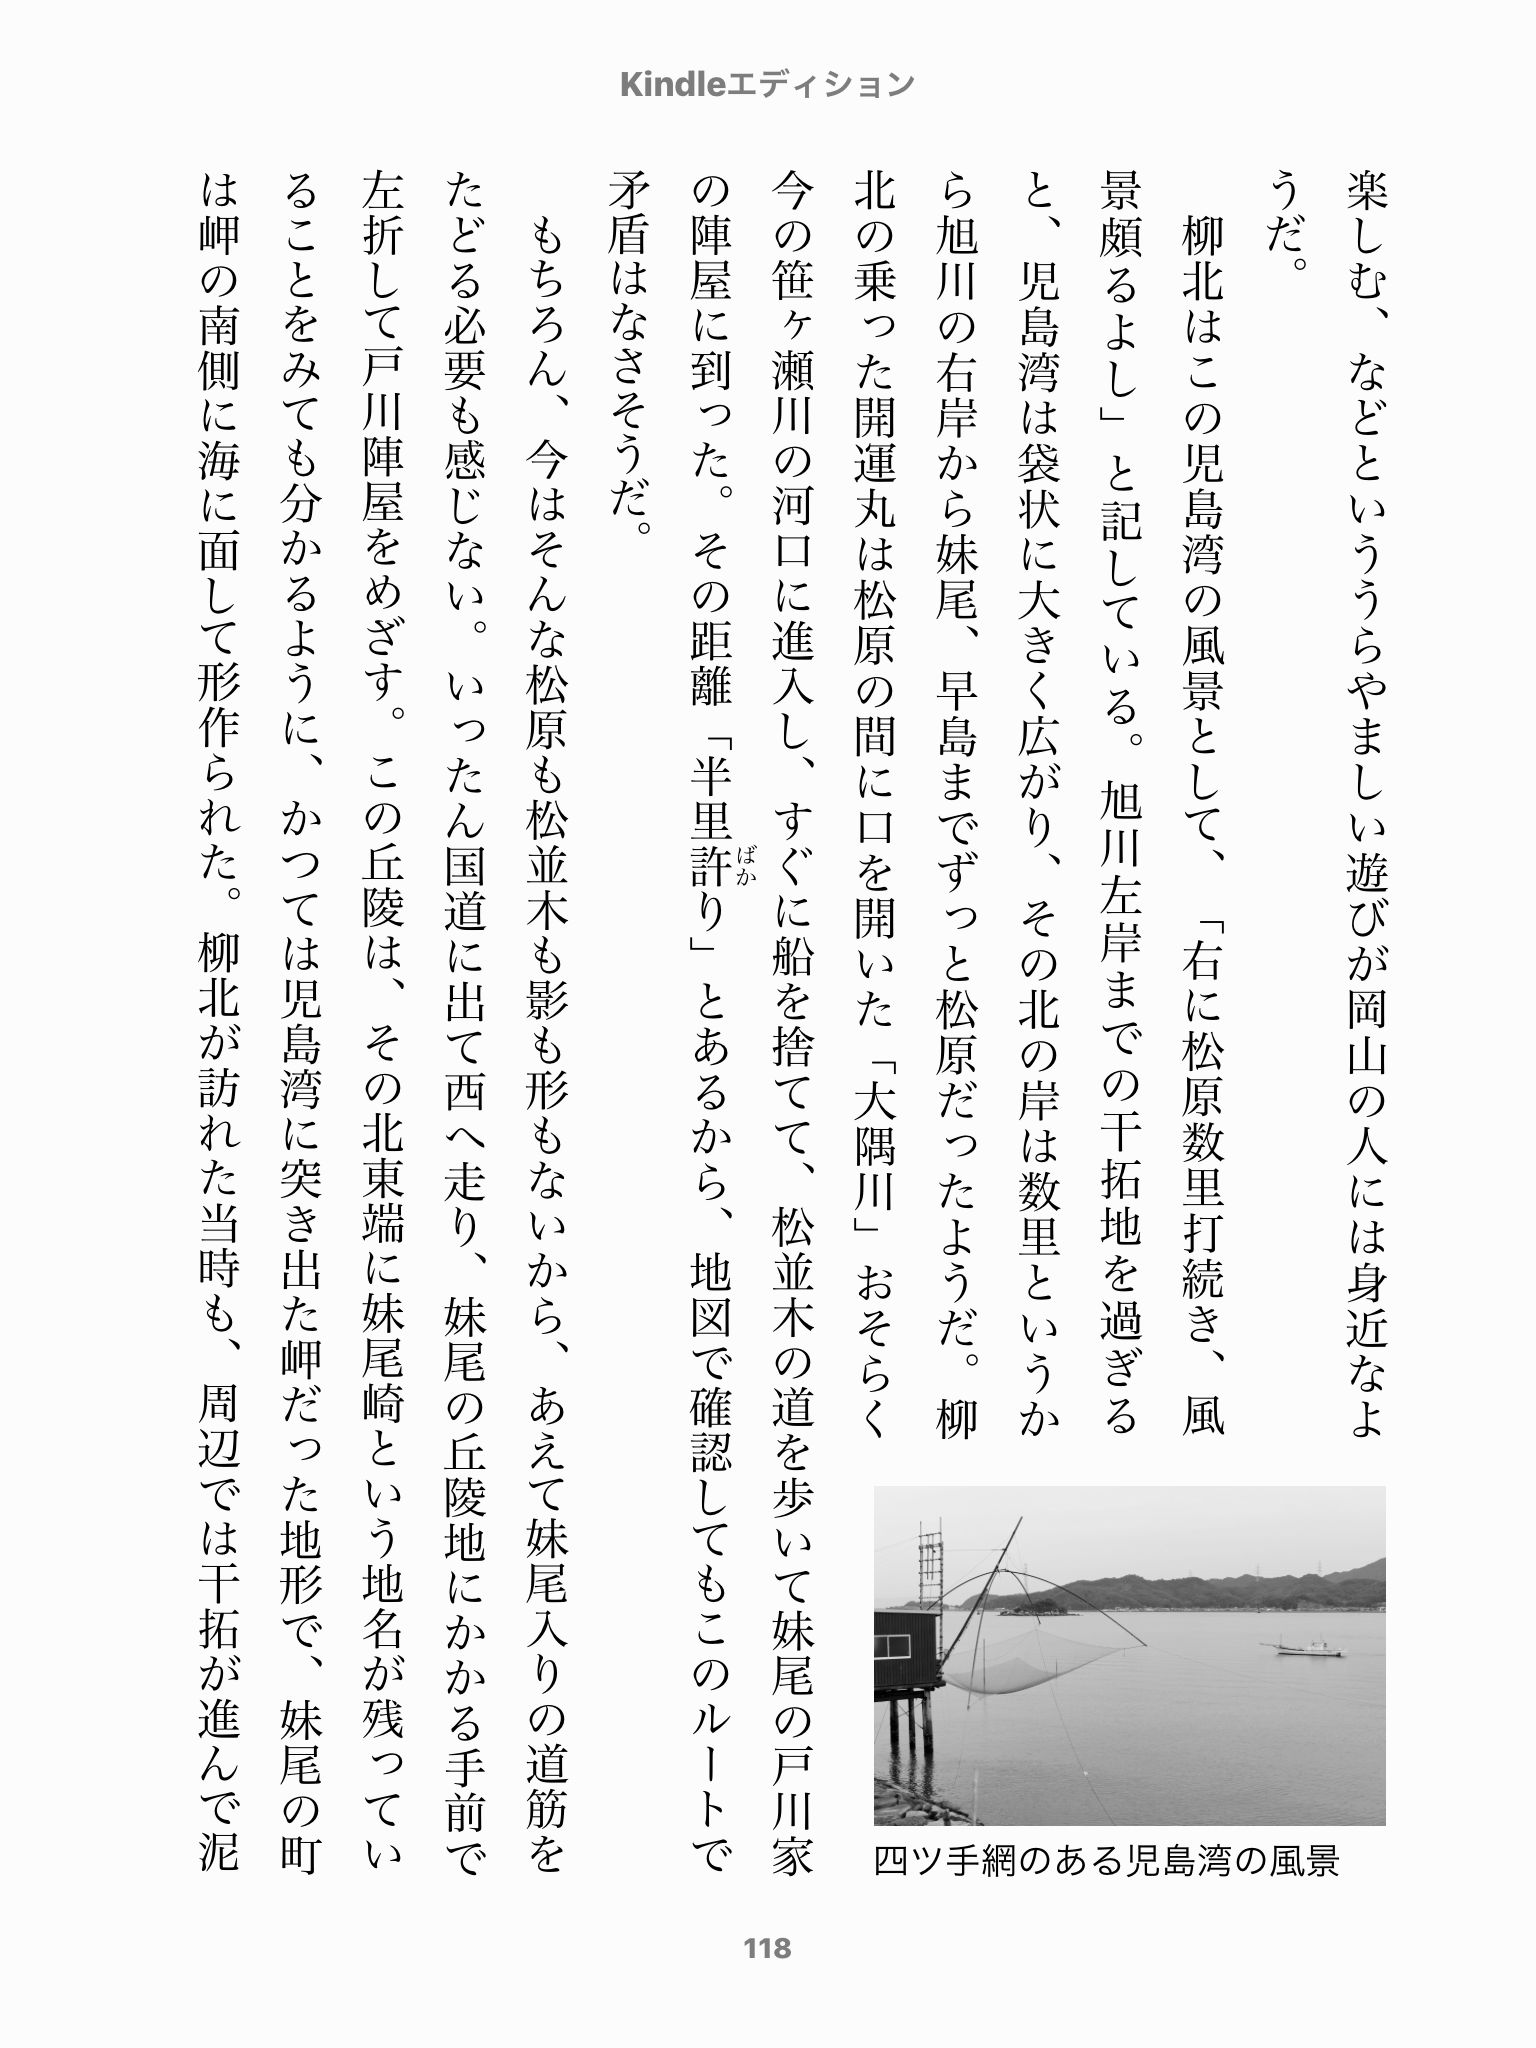 Kindleエディション
楽しむ、などといううらやましい遊びが岡山の人には身近なよ
うだ。
　柳北はこの児島湾の風景として、「右に松原数里打続き、風
景頗るよし」と記している。旭川左岸までの干拓地を過ぎる
と、児島湾は袋状に大きく広がり、その北の岸は数里というか
ら旭川の右岸から妹尾、早島までずっと松原だったようだ。柳
北の乗った開運丸は松原の間に口を開いた「大隅川」おそらく
今の笹ヶ瀬川の河口に進入し、すぐに船を捨てて、松並木の道を歩いて妹尾の戸川家
の陣屋に到った。その距離「半里許り」とあるから、地図で確認してもこのルートで
ばか
矛盾はなさそうだ。
　もちろん、今はそんな松原も松並木も影も形もないから、あえて妹尾入りの道筋を
たどる必要も感じない。いったん国道に出て西へ走り、妹尾の丘陵地にかかる手前で
左折して戸川陣屋をめざす。この丘陵は、その北東端に妹尾崎という地名が残ってい
ることをみても分かるように、かつては児島湾に突き出た岬だった地形で、妹尾の町
は岬の南側に海に面して形作られた。柳北が訪れた当時も、周辺では干拓が進んで泥
四ツ手網のある児島湾の風景
118